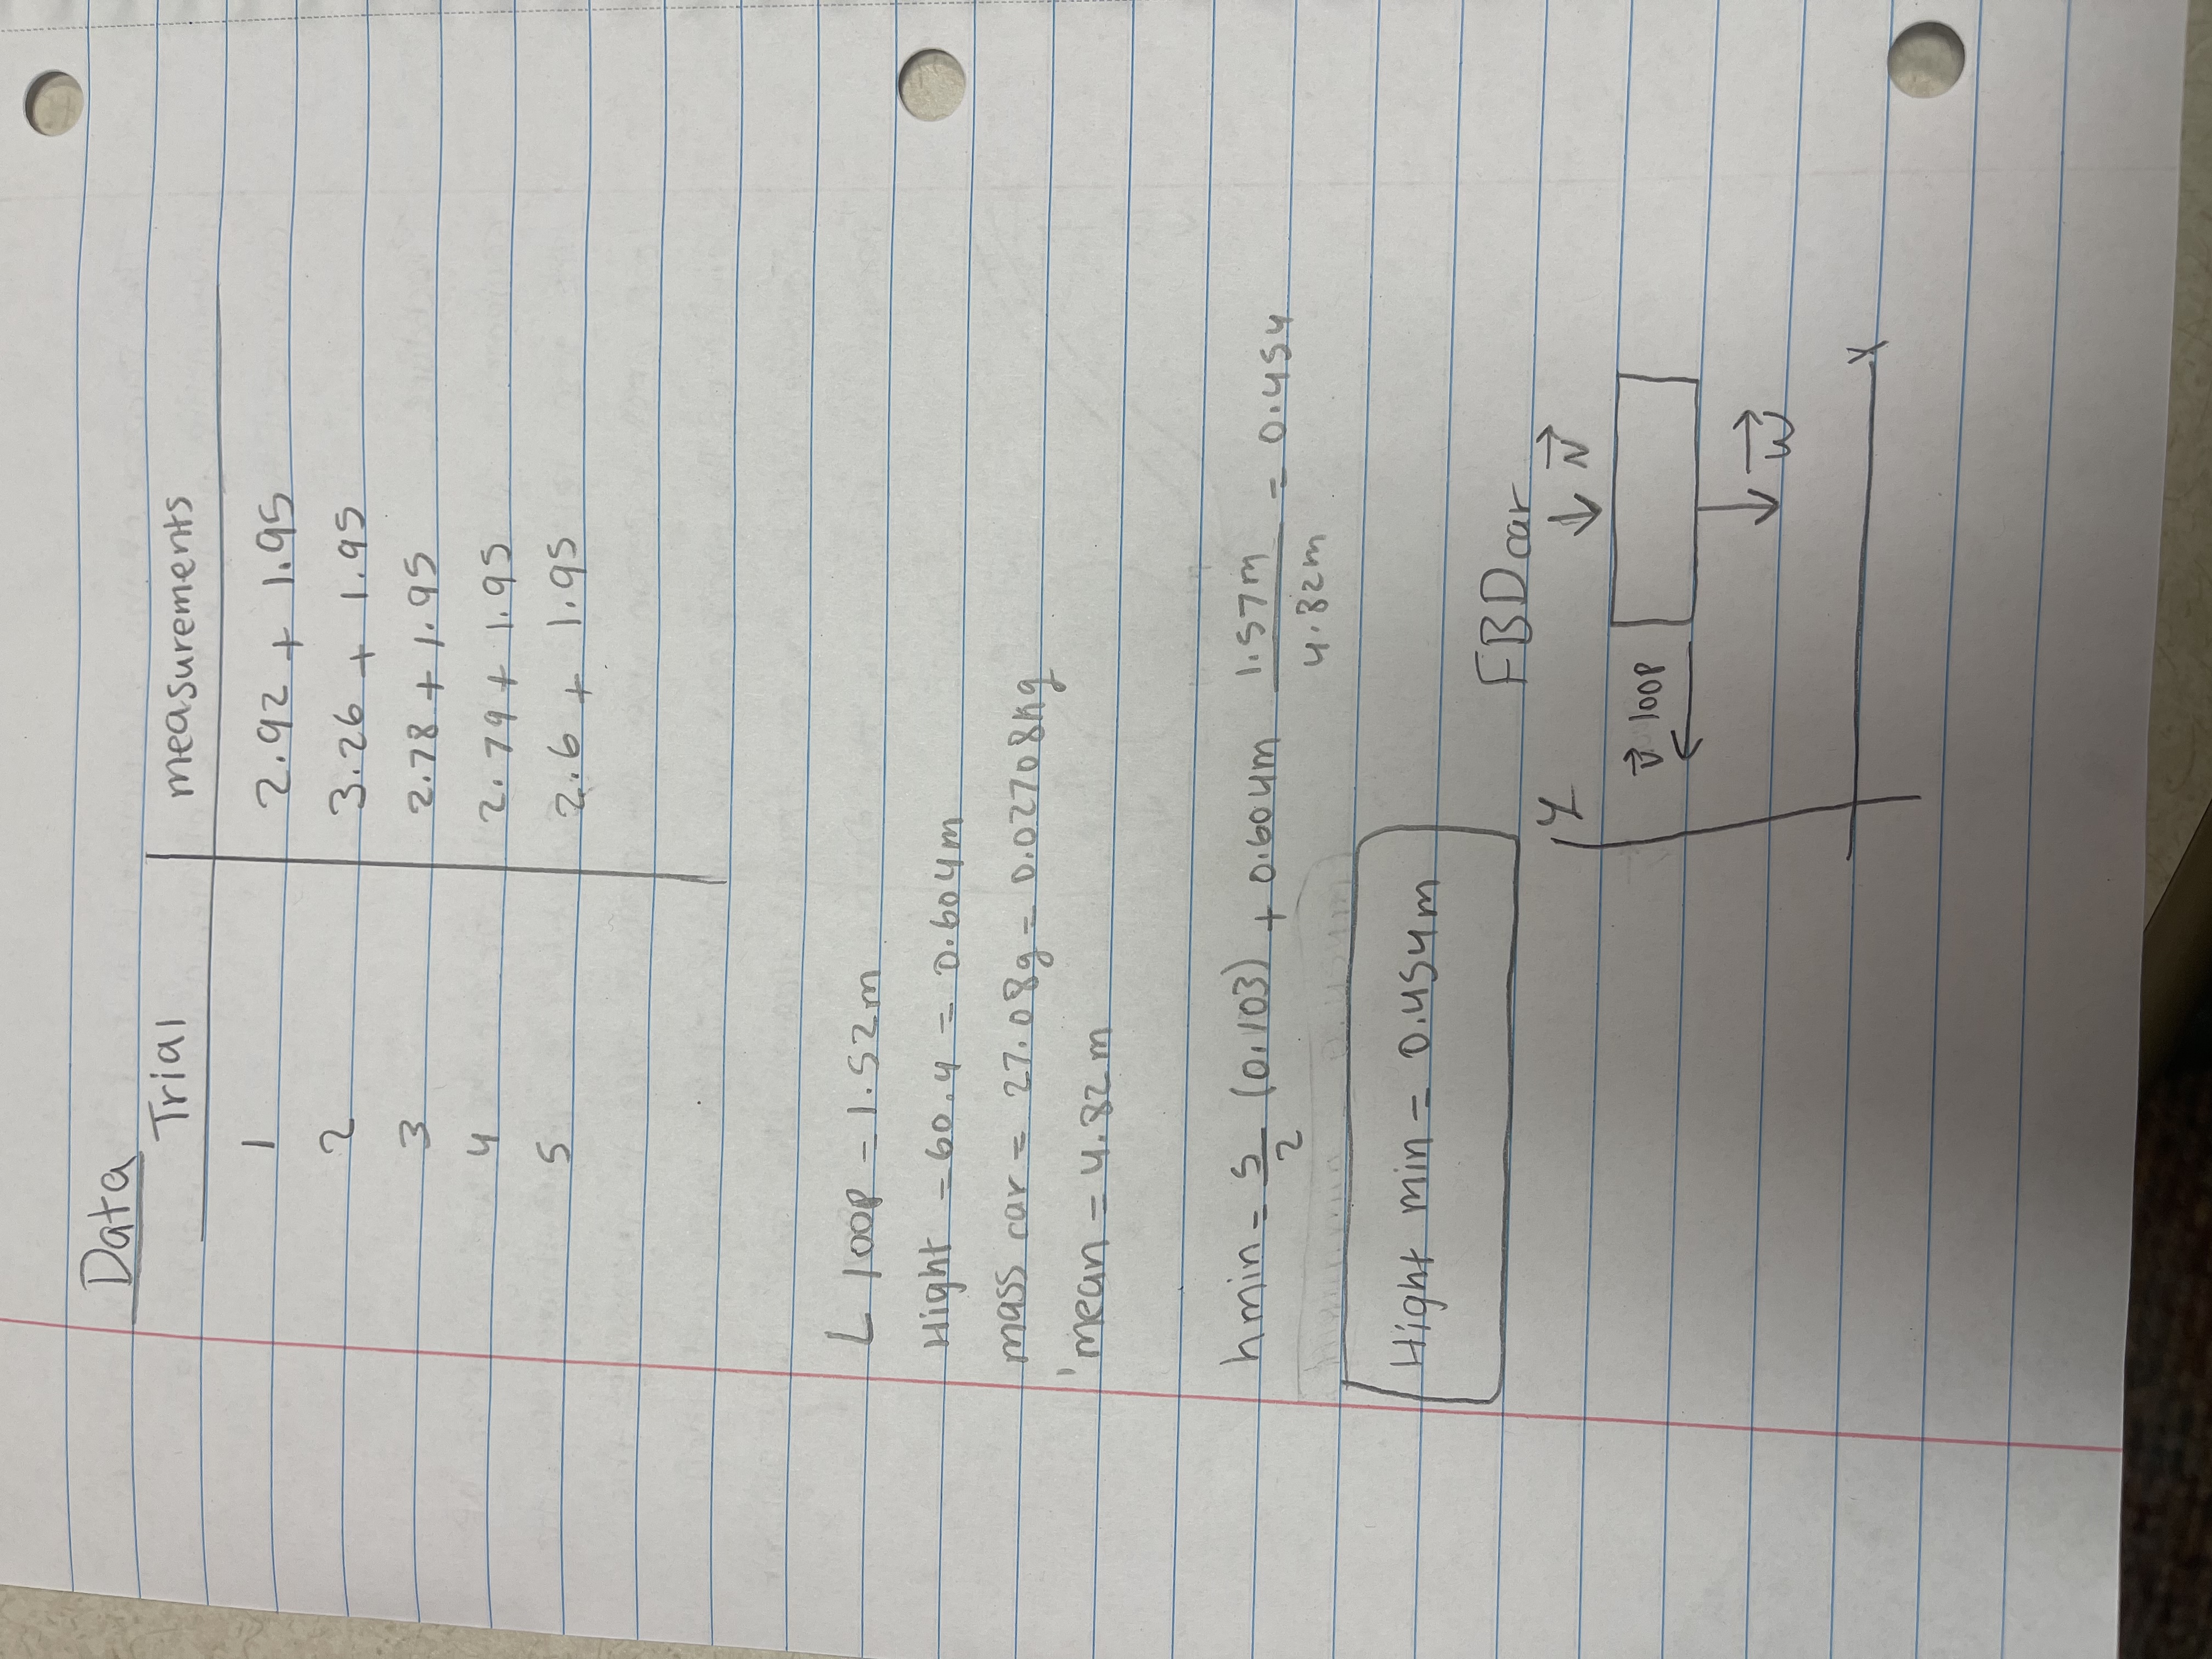 Data
Trial measurements
1 2.92 + 1.95
2 3.26 + 1.95
3 2.78 + 1.95
4 2.79 + 1.95
5 2.6 + 1.95
L loop = 1.52m
Hight = 60.4 = 0.604m
mass car = 27.08g = 0.02708kg
mean = 4.82m
hmin = 5/2 (0.103) + 0.604m 1.57m/4.82m = 0.454
Hight min = 0.454m
FBD car
y
N
v loop
W
x